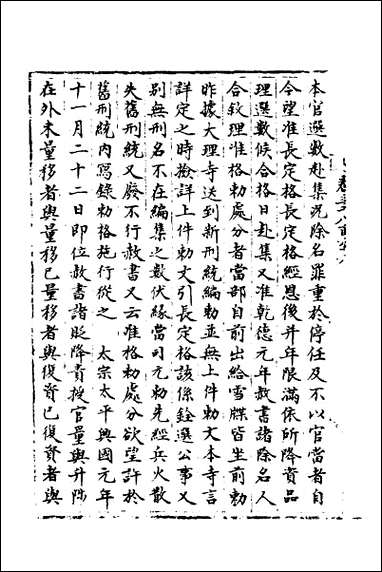 本官選數赴集况除名罪重於停任及不以官當者自
今望准長定格長定格經恩後并年限滿依所降資品
理選數候合格日赴集又准乾德元年赦書諸除名人
合敘理准格勅處分者當部自前出給雪牒皆坐前勅
昨據大理寺送到新刑統編勅並無上件勅文本寺言
詳定之時撿詳上件勅文引長定格該係銓選公事又
別無刑名不在編集之數伏緣當司元勅先經兵火散
失舊刑統又廢不行赦書又云准格勅處分欲望許於
舊刑統内寫錄勅格施行從之 太宗太平興國元年
十一月二十二日即位赦書諸貶降責授官量與升陟
在外未量移者與量移已量移者與復資已復資者與